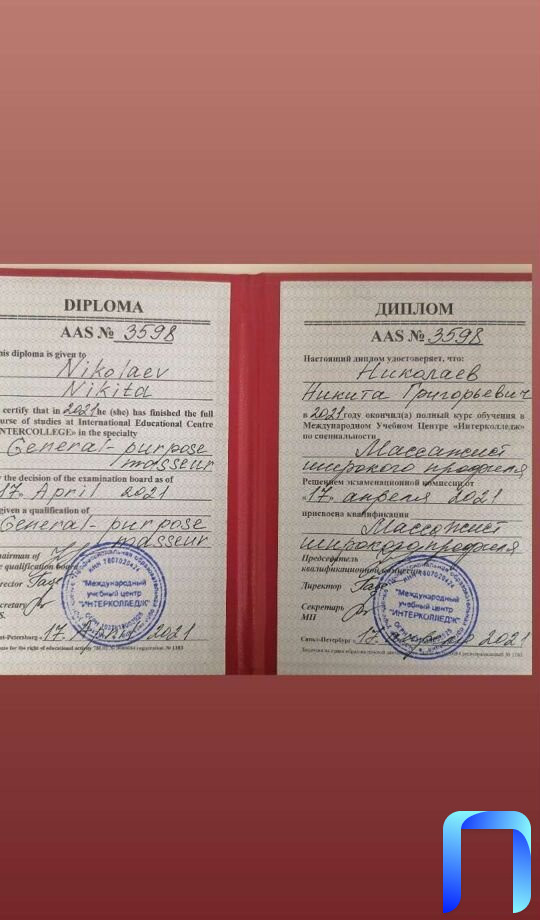 DIPLOMA
AAS № 3598
his diploma is given to
Nikolaev
Nikita
certify that in 2021 he (she) has finished the full
urse of studies at International Educational Centre
NTERCOLLEGE» in the specialty
General-purpose
masseur
y the decision of the examination board as of
17» April 2021
given a qualification of
General-purpose
masseur
airman of
e qualification board
rector
cretary
S.
"Международный
учебный центр
"ИНТЕРКОЛЛЕДЖ"
nt-Petersburg «17. 2021
ДИПЛОМ
AAS № 3598
Настоящий диплом удостоверяет, что:
Николаев
Никита Григорьевич
в 2021 году окончил(а) полный курс обучения в
Международном Учебном Центре «Интерколледж»
по специальности
Массажист
широкого профиля
Решением экзаменационной комиссии от
«17» апреля 2021
присвоена квалификация
Массажист
широкого профиля
Председатель
квалификационной комиссии
Директор
Секретарь
МП
"Международный
учебный центр
"ИНТЕРКОЛЛЕДЖ"
Санкт-Петербург «17. 2021